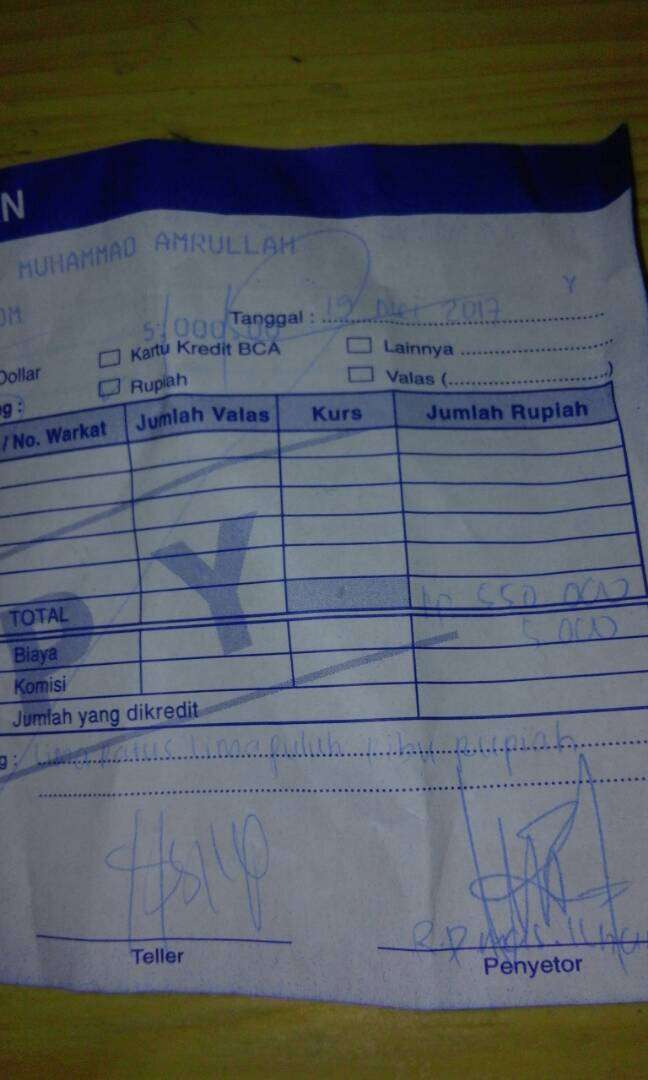 N
MUHAMMAD AMRULLAH
OM Y
Tanggal : 19 Mei 2017
5,000.00
Kartu Kredit BCA Lainnya
Dollar Rupiah Valas ( )
g :
/ No. Warkat Jumlah Valas Kurs Jumlah Rupiah
PY
TOTAL Rp 550.000
Biaya 5.000
Komisi
Jumlah yang dikredit
g : Lima Ratus Lima puluh ribu rupiah
Teller Penyetor